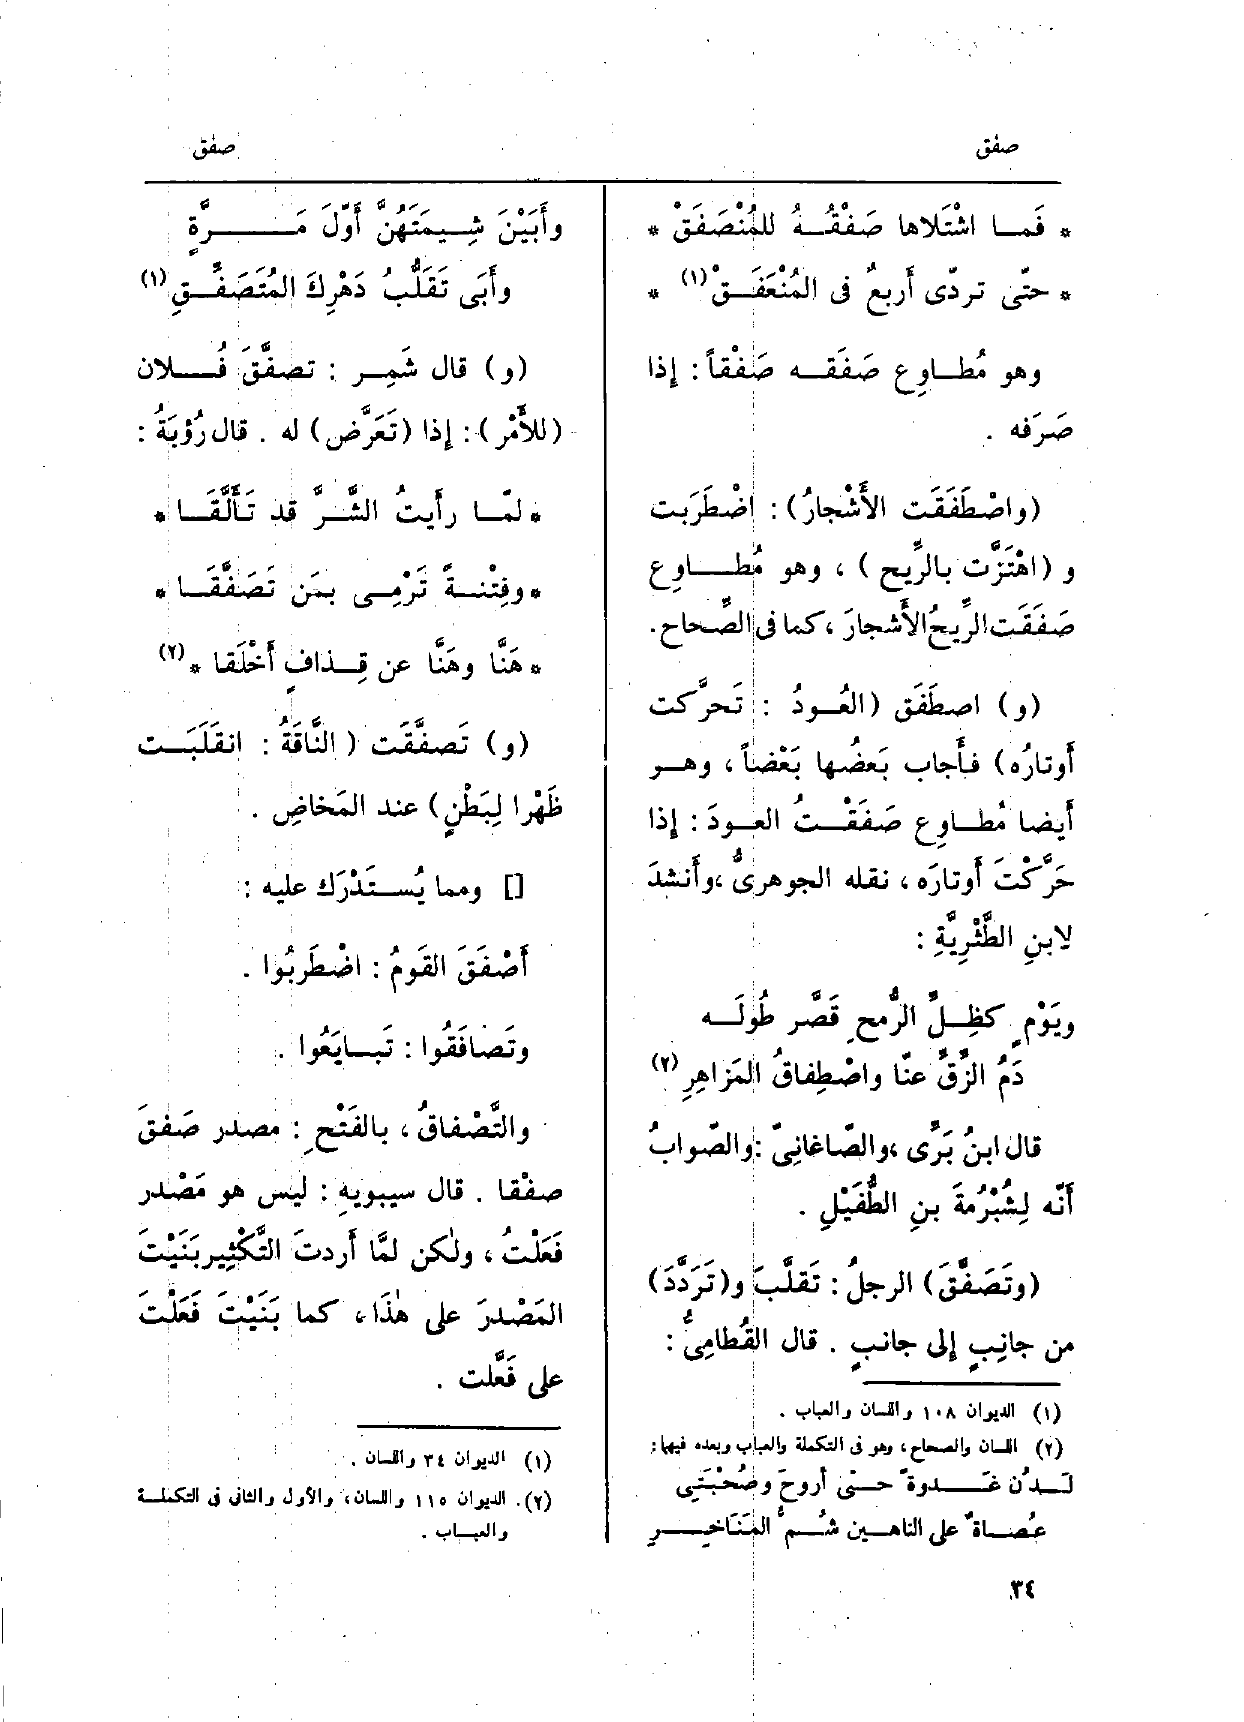 صفق
صفق
* فَمـا اشْتَلاها صَفْقُـهُ للمُنْصَفَقْ *
* حتّى تردّى أربعٌ فى المُنْعَفَـقْ (١) *
وهو مُطـاوِع صَفَقـه صَفْقاً : إذا
صَرَفه .
(واصْطَفَقَت الأَشْجارُ) : اضْطَرَبت
و (اهْتَزَّت بالرِّيح ) ، وهو مُطـاوِع
صَفَقَت الرِّيحُ الأَشجارَ ، كما فى الصِّحاح .
(و) اصطَفَق (العُـودُ : تَحرَّكت
أَوتارُه) فأَجاب بَعضُها بَعْضاً ، وهـو
أَيضا مُطـاوِع صَفَقْـتُ العـودَ : إذا
حَرَّكْتَ أَوتارَه ، نقله الجوهرىُّ ، وأَنشدَ
لابنِ الطَّثْرِيَّةِ :
ويَوْمٍ كظِـلِّ الرُّمحِ قَصَّر طُولَـه
دَمُ الزِّقِّ عنّا واصْطِفاقُ المَزاهِرِ (٢)
قال ابنُ بَرِّى ، والصّاغانِىّ : والصّوابُ
أَنّه لِشُبْرُمةَ بنِ الطُّفَيْلِ .
(وتَصَفَّقَ) الرجلُ : تَقلَّبَ و(تَرَدَّدَ)
من جانِبٍ إلى جانبٍ . قال القُطامِىُّ :
(١) الديوان ١٠٨ واللسان والعباب .
(٢) اللسان والصحاح ، وهو فى التكملة والعباب وبعده فيها :
لَـدُن غَـدوةً حـتى أروحَ وصُحْبَتِى
عُصـاةٌ على الناهـين شُـمُّ المَنَاخِـرِ
وأَبَيْنَ شِـيمَتَهُنَّ أَوّلَ مَـرَّةٍ
وأَبَى تَقَلُّبُ دَهْرِكَ المُتَصَفِّـقِ (١)
(و) قال شَمِـر : تصفَّقَ فُـلان
(للأَمْرِ) : إذا (تَعَرَّض) له . قال رُؤبَةُ :
* لمّـا رأَيتُ الشَّـرَّ قد تَأَلَّقَـا *
* وفِتْنـةً تَرْمِـى بمَن تَصَفَّقَـا *
* هَنَّا وهَنَّا عن قِـذافٍ أَخْلَقا * (٢)
(و) تَصفَّقَت ( النَّاقَةُ : انقلَبَـت
ظَهْرا لِبَطْنٍ) عند المَخاضِ .
[] ومما يُسـتَدْرَك عليه :
أَصْفَقَ القَومُ : اضْطَربُوا .
وتَصافَقُوا : تَبـايَعُوا .
والتَّصْفاقُ ، بالفَتْحِ : مصدر صَفقَ
صفْقا . قال سيبويهِ : ليس هو مَصْدر
فَعَلْتُ ، ولٰكن لمَّا أَردتَ التَّكْثِير بَنَيْتَ
المَصْدرَ على هٰذَا ، كما بَنَيْتَ فَعَلْتَ
على فَعَّلت .
(١) الديوان ٣٤ واللسان .
(٢) . الديوان ١١٥ واللسان ، والأول والثانى فى التكملـة
والعبـاب .
٣٤